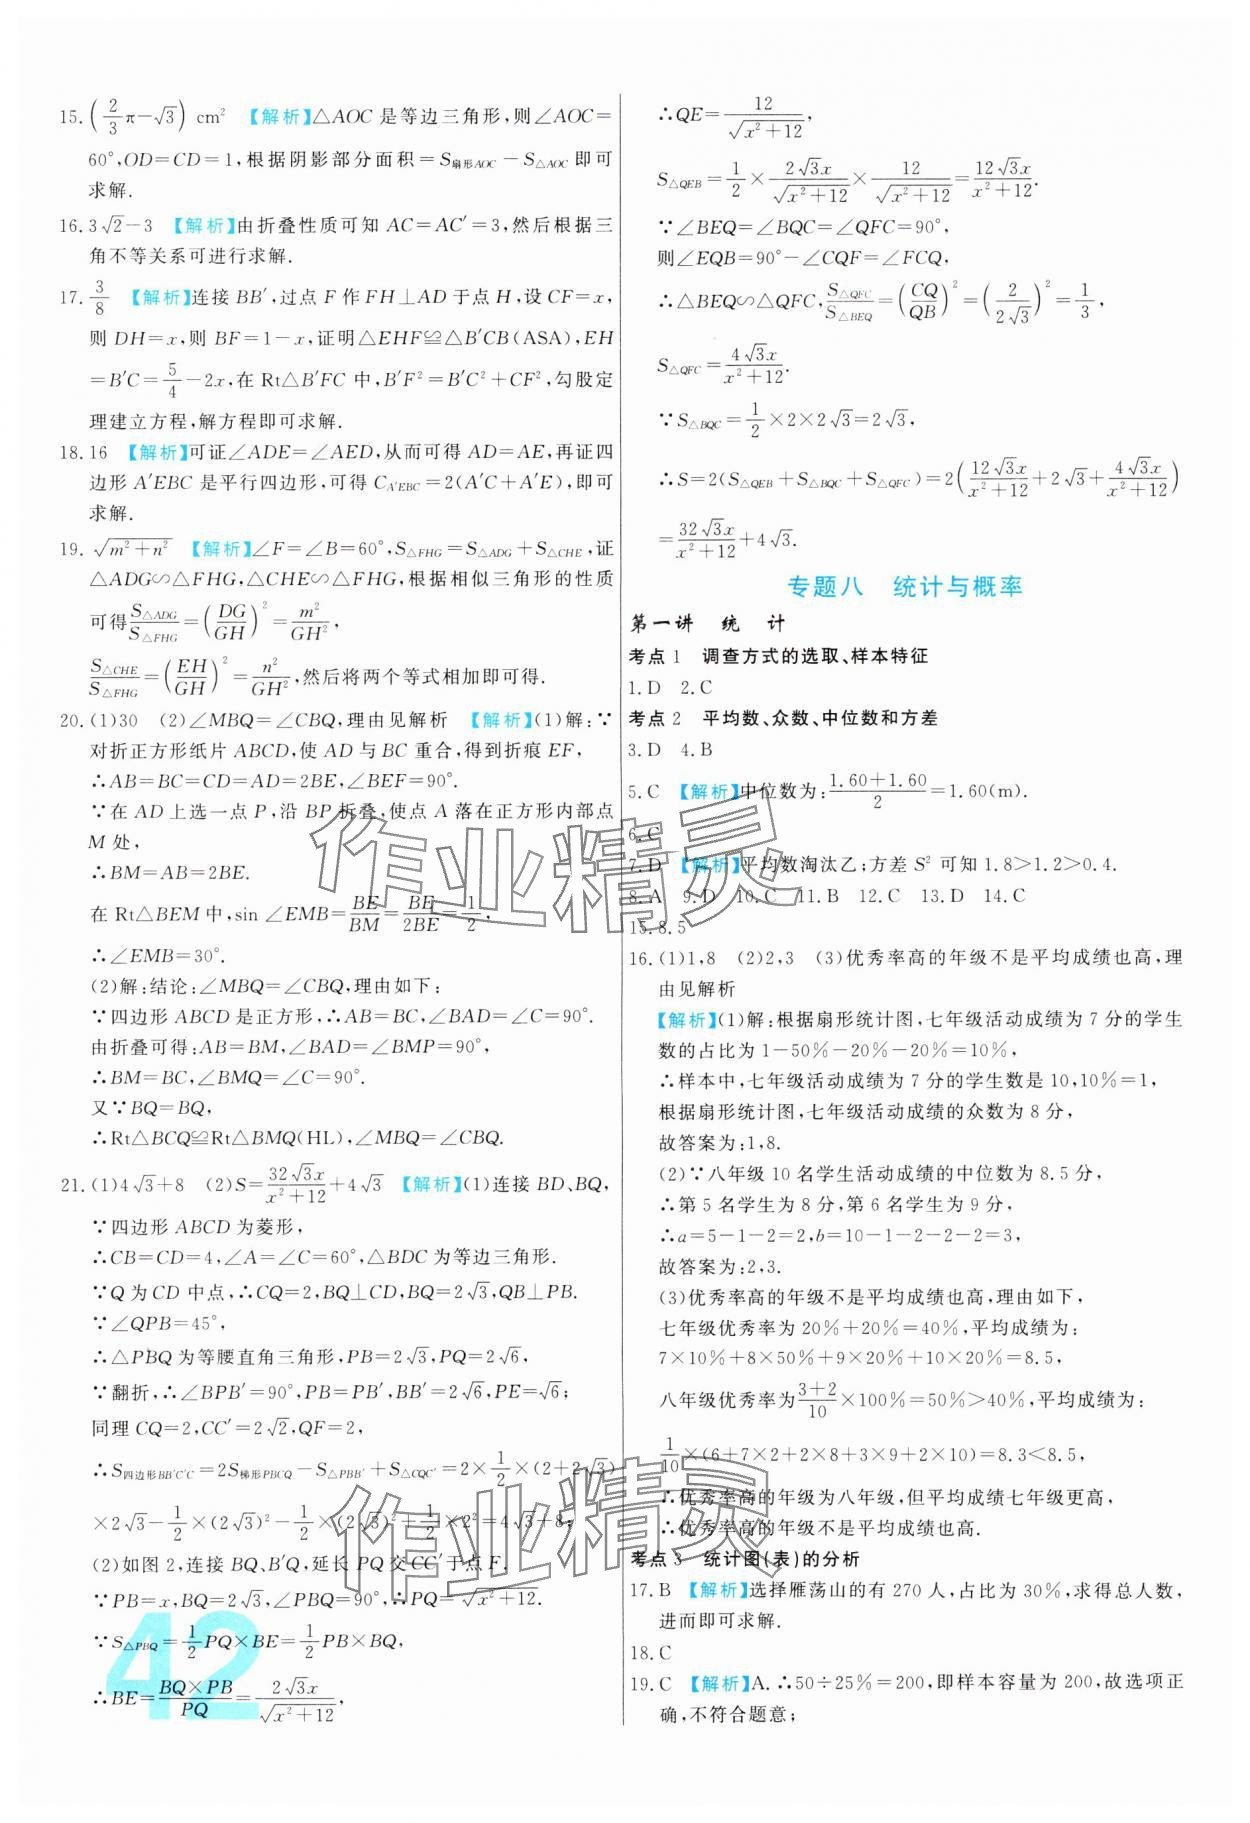 15. (2/3 π−√3) cm² 【解析】△AOC 是等边三角形,则∠AOC=
60°,OD=CD=1,根据阴影部分面积=S扇形AOC−S△AOC即可
求解.
16. 3√2−3 【解析】由折叠性质可知 AC=AC′=3,然后根据三
角不等关系可进行求解.
17. 3/8 【解析】连接 BB′,过点 F 作 FH⊥AD 于点 H,设 CF=x,
则 DH=x,则 BF=1−x,证明△EHF≌△B′CB(ASA),EH
=B′C=5/4−2x,在 Rt△B′FC 中,B′F²=B′C²+CF²,勾股定
理建立方程,解方程即可求解.
18. 16 【解析】可证∠ADE=∠AED,从而可得 AD=AE,再证四
边形 A′EBC 是平行四边形,可得 C_A′EBC=2(A′C+A′E),即可
求解.
19. √(m²+n²) 【解析】∠F=∠B=60°,S△FHG=S△ADG+S△CHE,证
△ADG∽△FHG,△CHE∽△FHG,根据相似三角形的性质
可得 S△ADG/S△FHG=(DG/GH)²=m²/GH²,
S△CHE/S△FHG=(EH/GH)²=n²/GH²,然后将两个等式相加即可得.
20. (1)30 (2)∠MBQ=∠CBQ,理由见解析 【解析】(1)解:∵
对折正方形纸片 ABCD,使 AD 与 BC 重合,得到折痕 EF,
∴AB=BC=CD=AD=2BE,∠BEF=90°.
∵在 AD 上选一点 P,沿 BP 折叠,使点 A 落在正方形内部点
M 处,
∴BM=AB=2BE.
在 Rt△BEM 中,sin ∠EMB=BE/BM=BE/2BE=1/2,
∴∠EMB=30°.
(2)解:结论:∠MBQ=∠CBQ,理由如下:
∵四边形 ABCD 是正方形,∴AB=BC,∠BAD=∠C=90°.
由折叠可得:AB=BM,∠BAD=∠BMP=90°,
∴BM=BC,∠BMQ=∠C=90°.
又∵BQ=BQ,
∴Rt△BCQ≌Rt△BMQ(HL),∠MBQ=∠CBQ.
21. (1)4√3+8 (2)S=32√3x/(x²+12)+4√3 【解析】(1)连接 BD、BQ,
∵四边形 ABCD 为菱形,
∴CB=CD=4,∠A=∠C=60°,△BDC 为等边三角形.
∵Q 为 CD 中点,∴CQ=2,BQ⊥CD,BQ=2√3,QB⊥PB.
∵∠QPB=45°,
∴△PBQ 为等腰直角三角形,PB=2√3,PQ=2√6,
∵翻折,∴∠BPB′=90°,PB=PB′,BB′=2√6,PE=√6;
同理 CQ=2,CC′=2√2,QF=2,
∴S四边形BB′C′C=2S梯形PBCQ−S△PBB′+S△CQC′=2×1/2×(2+2√3)
×2√3−1/2×(2√3)²−1/2×(2√3)²+1/2×2²=4√3+8;
(2)如图 2,连接 BQ、B′Q,延长 PQ 交 CC′于点 F.
∵PB=x,BQ=2√3,∠PBQ=90°,∴PQ=√(x²+12).
∵S△PBQ=1/2 PQ×BE=1/2 PB×BQ,
∴BE=BQ×PB/PQ=2√3x/√(x²+12),
42
∴QE=12/√(x²+12),
S△QEB=1/2×2√3x/√(x²+12)×12/√(x²+12)=12√3x/(x²+12).
∵∠BEQ=∠BQC=∠QFC=90°,
则∠EQB=90°−∠CQF=∠FCQ,
∴△BEQ∽△QFC,S△QFC/S△BEQ=(CQ/QB)²=(2/2√3)²=1/3,
S△QFC=4√3x/(x²+12).
∵S△BQC=1/2×2×2√3=2√3,
∴S=2(S△QEB+S△BQC+S△QFC)=2(12√3x/(x²+12)+2√3+4√3x/(x²+12))
=32√3x/(x²+12)+4√3.
专题八 统计与概率
第一讲 统 计
考点 1 调查方式的选取、样本特征
1. D 2. C
考点 2 平均数、众数、中位数和方差
3. D 4. B
5. C 【解析】中位数为:(1.60+1.60)/2=1.60(m).
6. C
7. D 【解析】平均数淘汰乙;方差 S² 可知 1.8>1.2>0.4.
8. A 9. D 10. C 11. B 12. C 13. D 14. C
15. 8.5
16. (1)1,8 (2)2,3 (3)优秀率高的年级不是平均成绩也高,理
由见解析
【解析】(1)解:根据扇形统计图,七年级活动成绩为 7 分的学生
数的占比为 1−50%−20%−20%=10%,
∴样本中,七年级活动成绩为 7 分的学生数是 10,10%=1,
根据扇形统计图,七年级活动成绩的众数为 8 分,
故答案为:1,8.
(2)∵八年级 10 名学生活动成绩的中位数为 8.5 分,
∴第 5 名学生为 8 分,第 6 名学生为 9 分,
∴a=5−1−2=2,b=10−1−2−2−2=3,
故答案为:2,3.
(3)优秀率高的年级不是平均成绩也高,理由如下,
七年级优秀率为 20%+20%=40%,平均成绩为:
7×10%+8×50%+9×20%+10×20%=8.5,
八年级优秀率为(3+2)/10×100%=50%>40%,平均成绩为:
1/10×(6+7×2+2×8+3×9+2×10)=8.3<8.5,
∴优秀率高的年级为八年级,但平均成绩七年级更高,
∴优秀率高的年级不是平均成绩也高.
考点 3 统计图(表)的分析
17. B 【解析】选择雁荡山的有 270 人,占比为 30%,求得总人数,
进而即可求解.
18. C
19. C 【解析】A. ∴50÷25%=200,即样本容量为 200,故选项正
确,不符合题意;
作业精灵
作业精灵